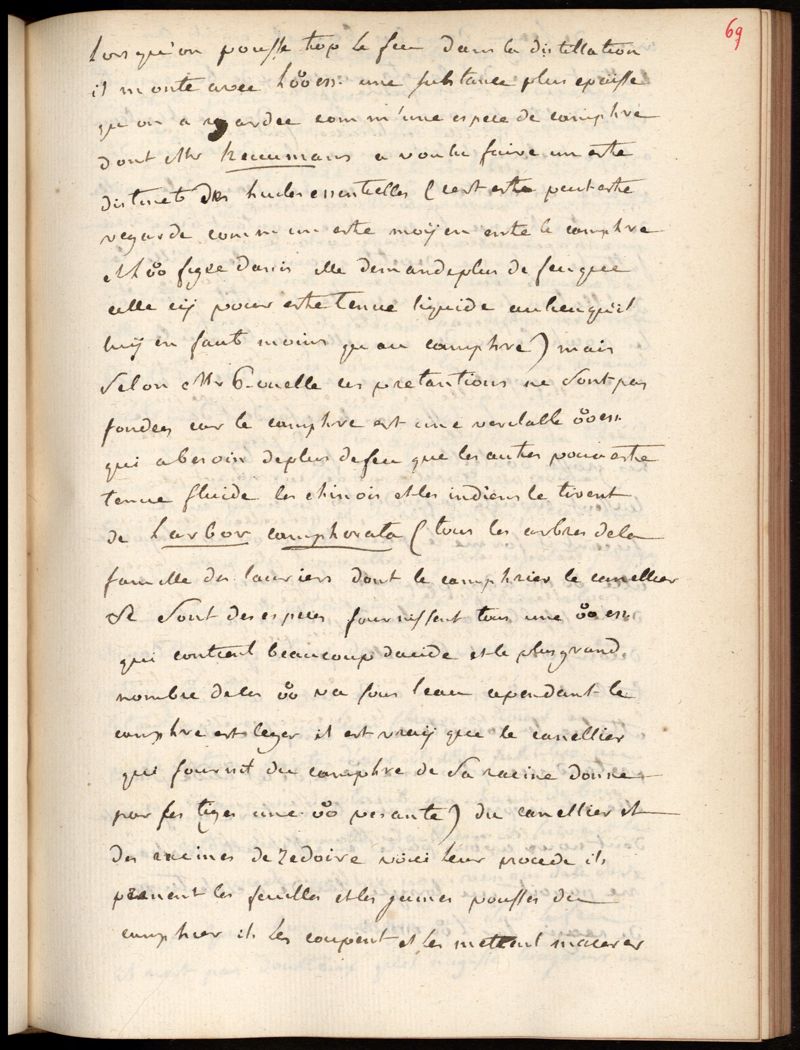 69
lors qu'on pousse trop le feu dans la distillation
il monte avec l'oo ess. une substance plus epaisse
qu'on a regardee comm'une espece de camphre
dont Mr neuumans a voulu faire un estre
distinct des huiles essentielles (cest estre peut estre
regarde comm un estre moijen entre le camphre
et l'oo figee danis elle demande plus de feu que
celle cij pour estre tenue liquide au lieu qu'il
luij en faut moins qu au camphre) mais
selon Mr Rouelle ces pretantions ne sont pas
fondees car le camphre est une veritable oo ess.
qui a besoin de plus de feu que les autres pour estre
tenue fluide les chinois et les indiens le tirent
de l'arbor camphorata (tous les arbres de la
famille des lauriers dont le camphrier le canellier
&c sont des especes fournissent tous une oo ess.
qui contient beaucoup dacide et le plus grand
nombre de ces oo va sous l'eau cependant le
camphre est leger il est vraij que le canellier
qui fournit du camphre de sa racine donne
par ses tiges une oo pesante) du canellier et
des racines de zedoire voici leur procede ils
prenent les feuilles et les jeunes pousses du
camphrier ils les coupent et les mettent macerer